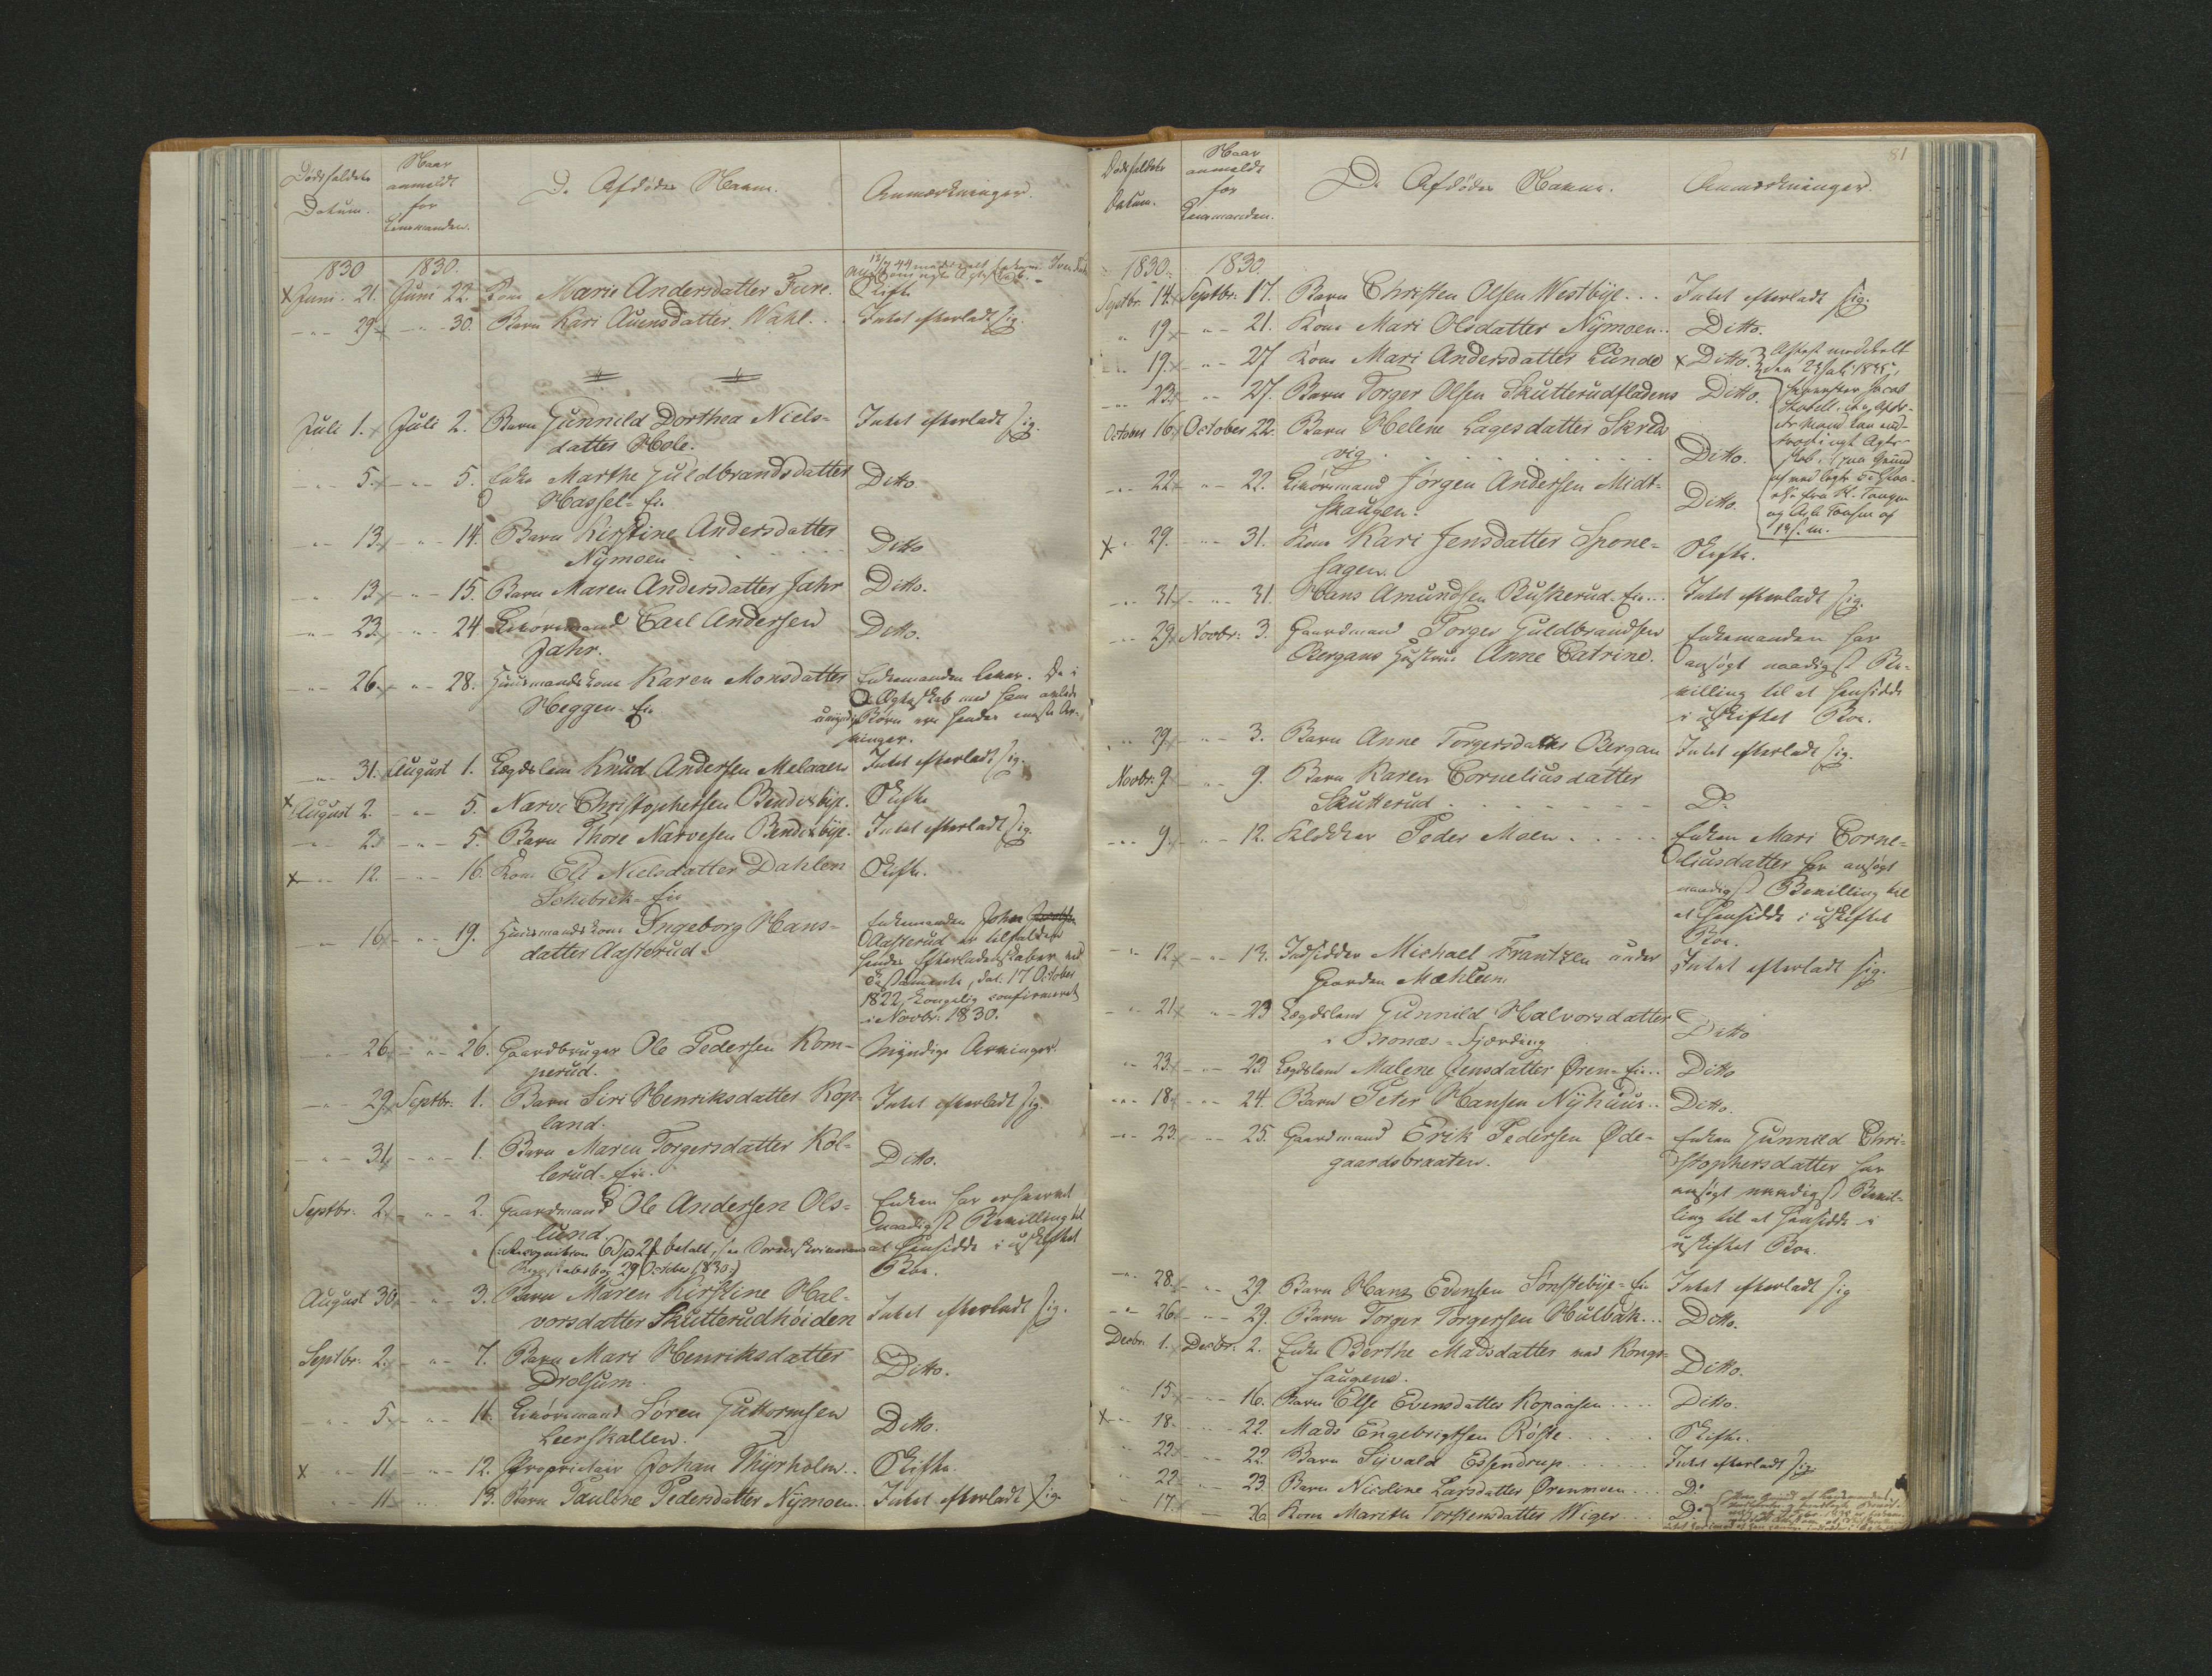 Dødsfaldets
Datum.
Naar
anmeldt
for
Lensmanden.
De Afdødes Navne.
Anmærkninger.
1830 1830.
Juni. 21. Juni 22. Kone Marie Andersdatter Fure. Skifte
29. 30. Barn Kari Auensdatter Wahl. Intet efterladt sig.
Juli 1. Juli 2. Barn Gunnild Dorthea Niels-
datter Hole. Intet efterladt sig.
5. 5. Enke Marthe Guldbrandsdatter
Hassel-Ei. Ditto
13. 14. Barn Kirstine Andersdatter
Nymoen Ditto
13. 15. Barn Maren Andersdatter Jahr Ditto.
23. 24 Carl Andersen
Jahr. Ditto.
26. 28. Huusmandskone Karen Monsdatter
Heggen-Ei
Enkemanden lever. De i
Ægteskab med ham avlede
umyndige Børn ere hendes eneste Ar-
vinger.
31. August 1. Lægdslem Knud Andersen Melaaen Intet efterladt sig.
August 2. 5. Narve Christophersen Bendixbye. Skifte
2. 5. Barn Thore Narvesen Bendixbye. Intet efterladt sig.
12. 16. Kone Eli Nielsdatter Dahlen
Schibrek-Ei Skifte.
16. 19. Huusmandskone Ingeborg Hans-
datter Aasterud.
Enkemanden John
Aasterud er tilfalden
hendes Efterladenskaber ved
Testamente, dat. 17 October
1822, kongelig confirmeret
i Novbr: 1830.
26. 26. Gaardbruger Ole Pedersen Kom-
perud. Myndige Arvinger.
29. Septbr: 1. Barn Siri Henriksdatter Kop-
land. Intet efterladt sig.
31. 1. Barn Maren Torgersdatter Kol-
lerud-Ei. Ditto.
Septbr: 2. 2. Gaardmand Ole Andersen Ols-
lund.
betalt, see Sorenskriverens
Regnskabsbog 29 October 1830.)
Enken har erhvervet
naadigst Bevilling til
at hensidde i uskiftet
Boe.
August 30. 3. Barn Maren Kirstine Hal-
vorsdatter Skutterudhöiden Intet efterladt sig.
Septbr: 2. 7. Barn Mari Henriksdatter
Drolsum. Ditto.
5. 11. Søren Guttormsen
Leerskallen. Ditto.
11. 12. Proprietair Johan Thyrholm. Skifte.
11. 13. Barn Pauline Pedersdatter Nymoen. Intet efterladt sig.
81
Dødsfaldets
Datum.
Naar
anmeldt
for
Lensmanden.
De Afdødes Navne.
Anmærkninger.
1830. 1830.
Septbr: 14. Septbr: 17. Barn Christen Olsen Westbye. Intet efterladt sig.
19. 21. Kone Mari Olsdatter Nymoen. Ditto.
19. 27. Kone Mari Andersdatter Lunde Ditto.
23. 27. Barn Torger Olsen Skutterudfladens Ditto.
October 16. October 22. Barn Helene Lagesdatter Skred
vig Ditto.
22. 22. Jørgen Andersen Midt-
skaugen. Ditto.
29. 31. Kone Kari Jensdatter Spone-
hagen. Skifte.
31. 31. Hans Amundsen Buskerud-Ei. Intet efterladt sig.
29. Novbr: 3. Gaardmand Torger Guldbrandsen
Bergans Hustrue Anne Catrine.
Enkemanden har
ansøgt naadigst Be-
villing til at hensidde
i uskiftet Boe.
29. 3. Barn Anne Torgersdatter Bergan Intet efterladt sig.
Novbr: 9. 9. Barn Karen Corneliusdatter
Skutterud Do
9. 12. Klokker Peder Moen.
Enken Mari Corne-
liusdatter har ansøgt
naadigst Bevilling til
at hensidde i uskiftet
Boe.
12. 13. Indsidder Michael Frantzen under
Gaarden Mæhlum Intet efterladt sig.
21. 23 Lægdslem Gunnild Halvorsdatter
i Snonæs-Fjerding Ditto
23. 23 Lægdslem Malene Jensdatter Øren-Ei. Ditto
18. 24. Barn Peter Hansen Nyhuus. Ditto.
23. 25. Gaardmand Erik Pedersen Øde-
gaardsbraaten.
Enken Gunnild Chri-
stophersdatter har
ansøgt naadigst Bevil-
ling til at hensidde i
uskiftet Boe.
28. 29. Barn Hans Evensen Sønstebye-Ei Intet efterladt sig
26. 29. Barn Torger Torgersen Hulbak. Ditto.
Decbr. 1. Decbr. 2. Enke Berthe Madsdatter ved Kongs-
haugene. Ditto.
15. 16. Barn Else Evensdatter Kopaasen. Ditto.
18. 22. Mads Engebrigtsen Röste. Skifte.
22. 22. Barn Syvald Essendrup. Intet efterladt sig
22. 23. Barn Nicoline Larsdatter Ørenmoen. Do
17. 26. Kone Marithe Torstensdatter Wiger. Do